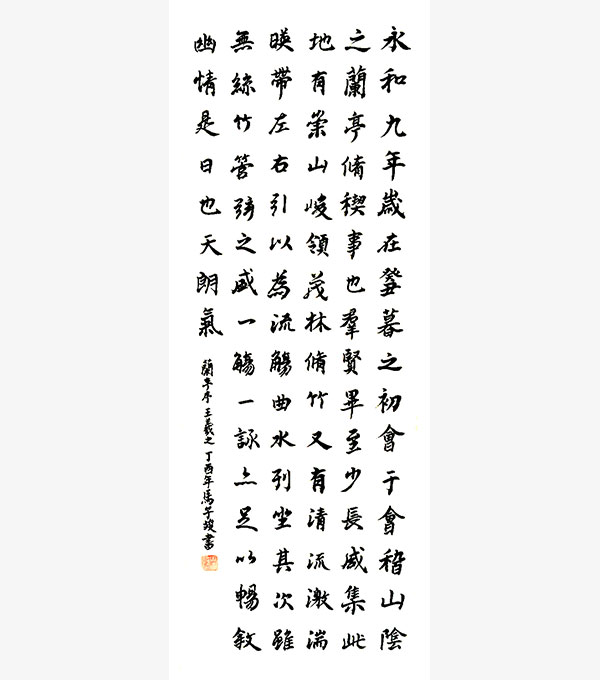 永和九年歲在癸丑暮之初會于會稽山陰
之蘭亭脩稧事也羣賢畢至少長咸集此
地有崇山峻領茂林脩竹又有清流激湍
暎帶左右引以為流觴曲水列坐其次雖
無絲竹管弦之盛一觴一詠亦足以暢敘
幽情是日也天朗氣
蘭亭序王羲之丁酉年馬子竣書